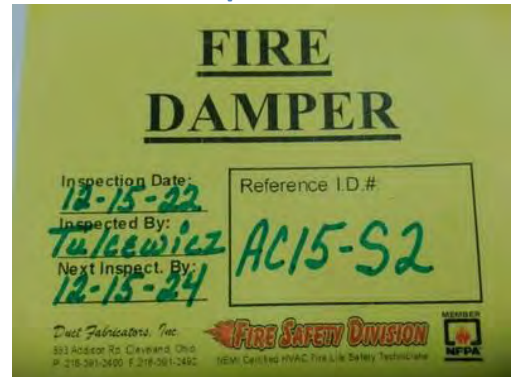 FIRE
DAMPER
Inspection Date:
12-15-22
Inspected By:
Tulcewicz
Next Inspect. By:
12-15-24
Reference I.D.#
AC15-S2
Duct Fabricators, Inc.
883 Addison Rd. Cleveland, Ohio
P. 216-391-2400 F. 216-391-2492
FIRE SAFETY DIVISION
NEMI Certified HVAC Fire Life Safety Technicians
MEMBER
NFPA